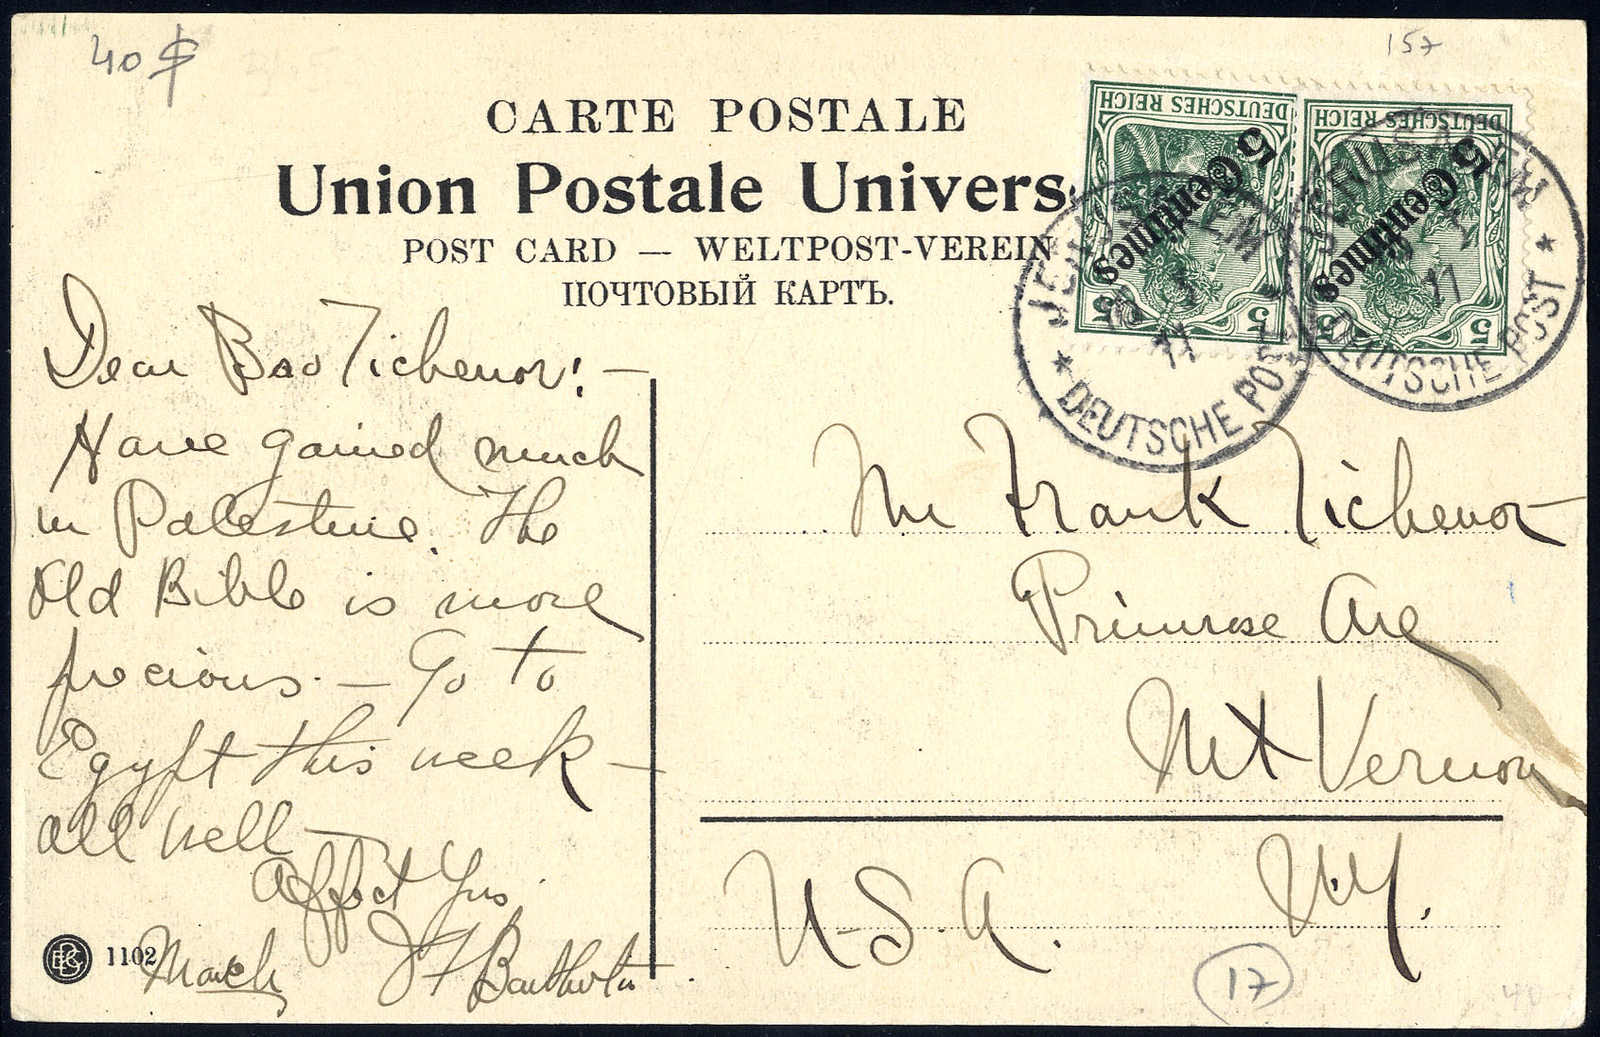 40 $
157
CARTE POSTALE
Union Postale Univers
POST CARD — WELTPOST-VEREIN
ПОЧТОВЫЙ КАРТЪ.
DEUTSCHES REICH
5 Centimes
5 5
DEUTSCHES REICH
5 Centimes
5 5
JERUSALEM
11
* DEUTSCHE POST
JERUSALEM
11
DEUTSCHE POST *
Dear Bro Tichenor! —
Have gained much
in Palestine. The
Old Bible is more
precious. — Go to
Egypt this week —
all well —
Affect Yrs.
March J F
1102
Mr Frank Tichenor
Primrose Ave
Mt Vernon
U.S.A. N.Y.
17
40